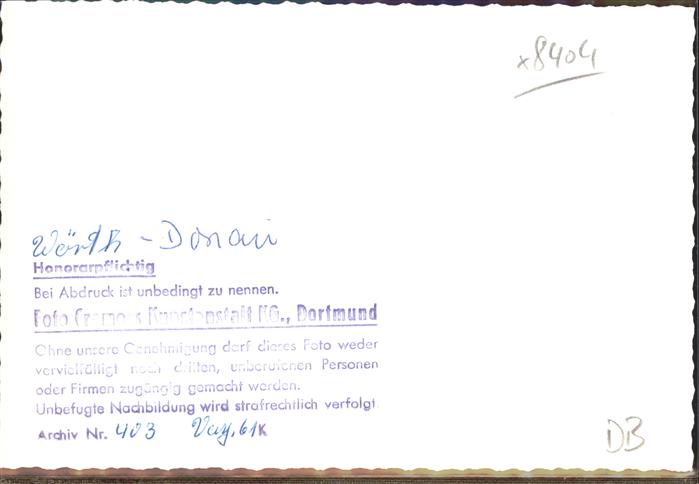 x8404
Wörth - Donau
Honorarpflichtig
Bei Abdruck ist unbedingt zu nennen.
Foto Cramers Kunstanstalt KG., Dortmund
Ohne unsere Genehmigung darf dieses Foto weder
vervielfältigt noch dritten, unberufenen Personen
oder Firmen zugängig gemacht werden.
Unbefugte Nachbildung wird strafrechtlich verfolgt
Archiv Nr. 403 61K
DB